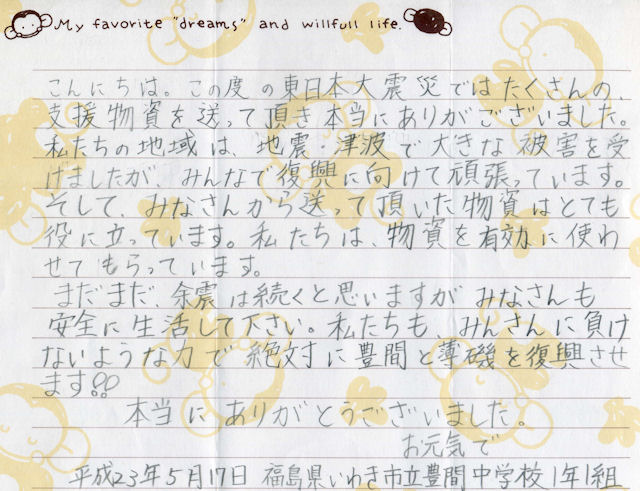 My favorite "dreams" and willfull life.
こんにちは。この度の東日本大震災ではたくさんの、
支援物資を送って頂き本当にありがございました。
私たちの地域は、地震・津波で大きな被害を受
けましたが、みんなで復興に向けて頑張っています。
そして、みなさんから送って頂いた物資はとても
役に立っています。私たちは、物資を有効に使わ
せてもらっています。
まだまだ、余震は続くと思いますがみなさんも
安全に生活して下さい。私たちも、みんさんに負け
ないような力で絶対に豊間と薄磯を復興させ
ます!!
本当にありがとうございました。
お元気で
平成23年5月17日 福島県いわき市立豊間中学校1年1組